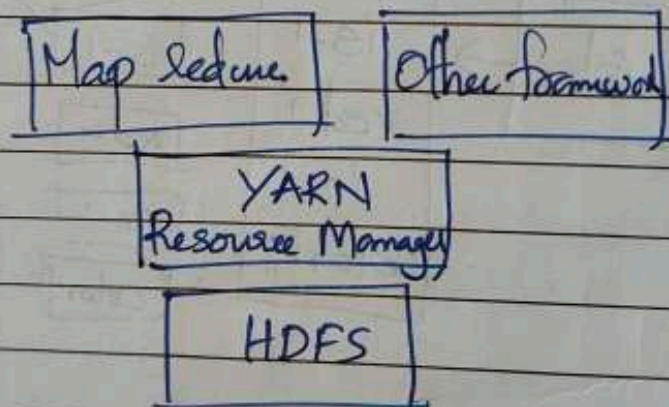 Map Reduce
Other framework
YARN
Resource Manager
HDFS